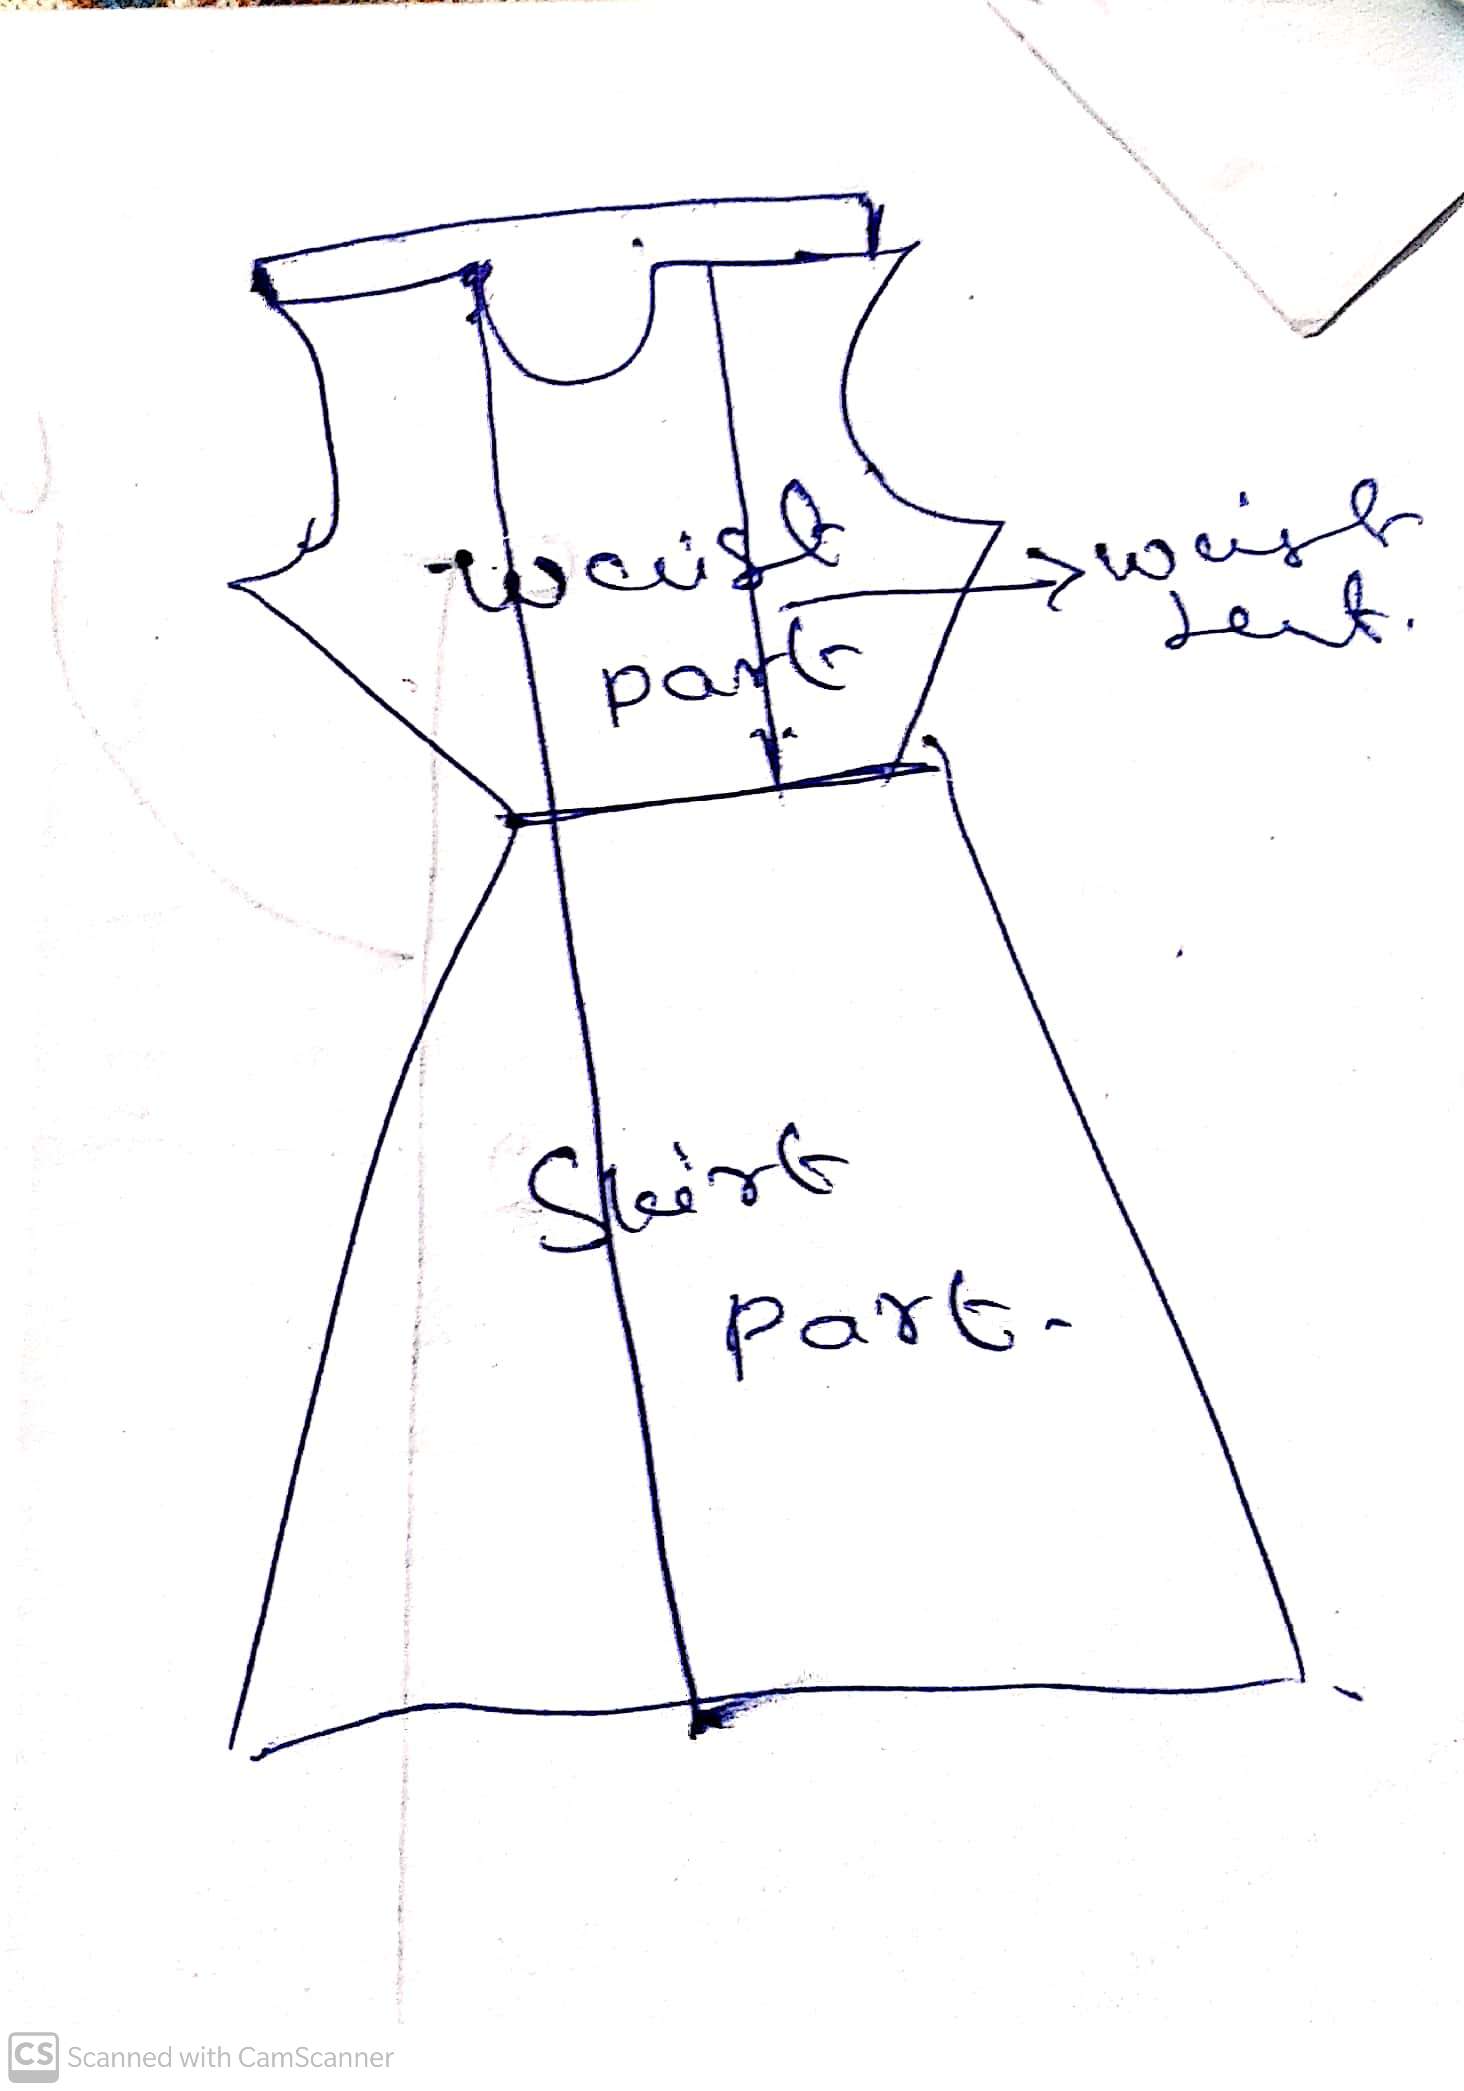 waist
part
waist
Lent.
Skirt
part.
CS Scanned with CamScanner